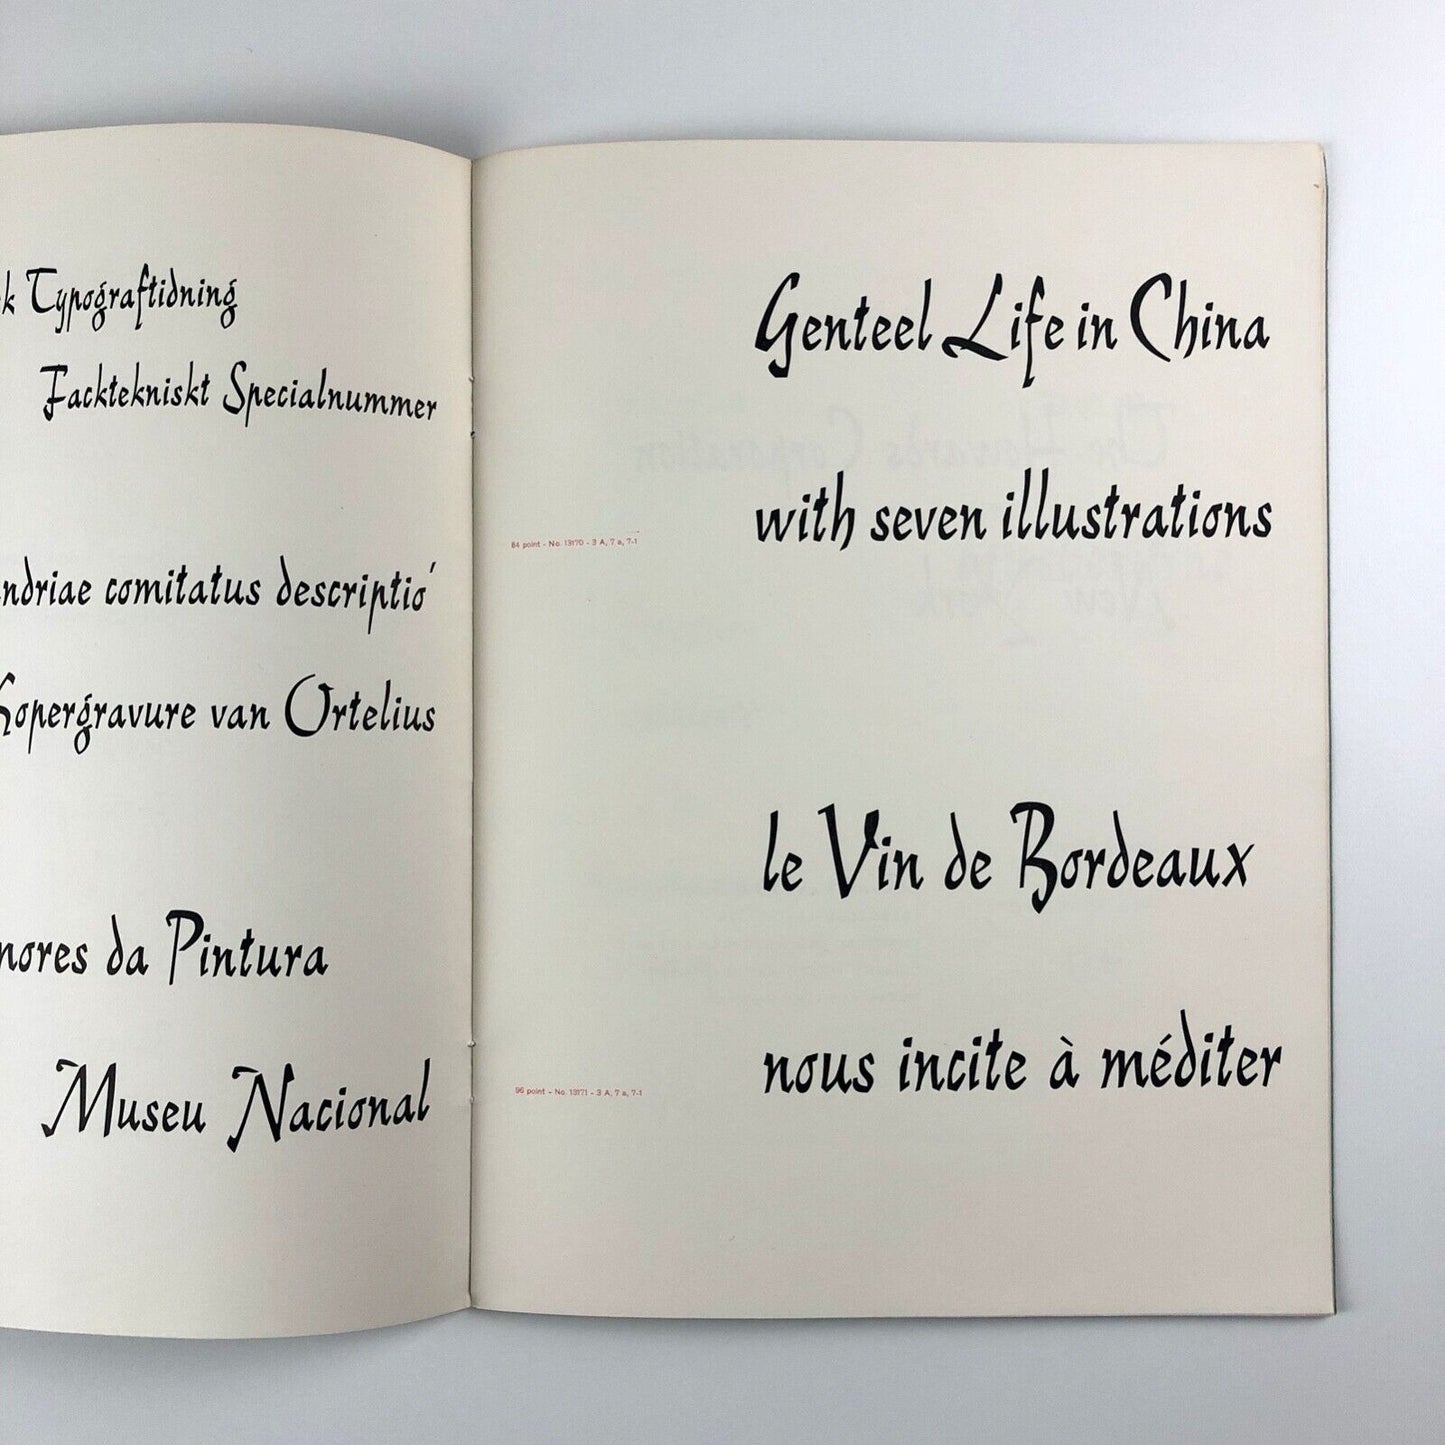 Typograftidning
Facktekniskt Specialnummer
comitatus descriptio
Kopergravure van Ortelius
da Pintura
Museu Nacional
Genteel Life in China
84 point - No. 13170 - 3 A, 7 a, 7-1
with seven illustrations
le Vin de Bordeaux
96 point - No. 13171 - 3 A, 7 a, 7-1
nous incite à méditer